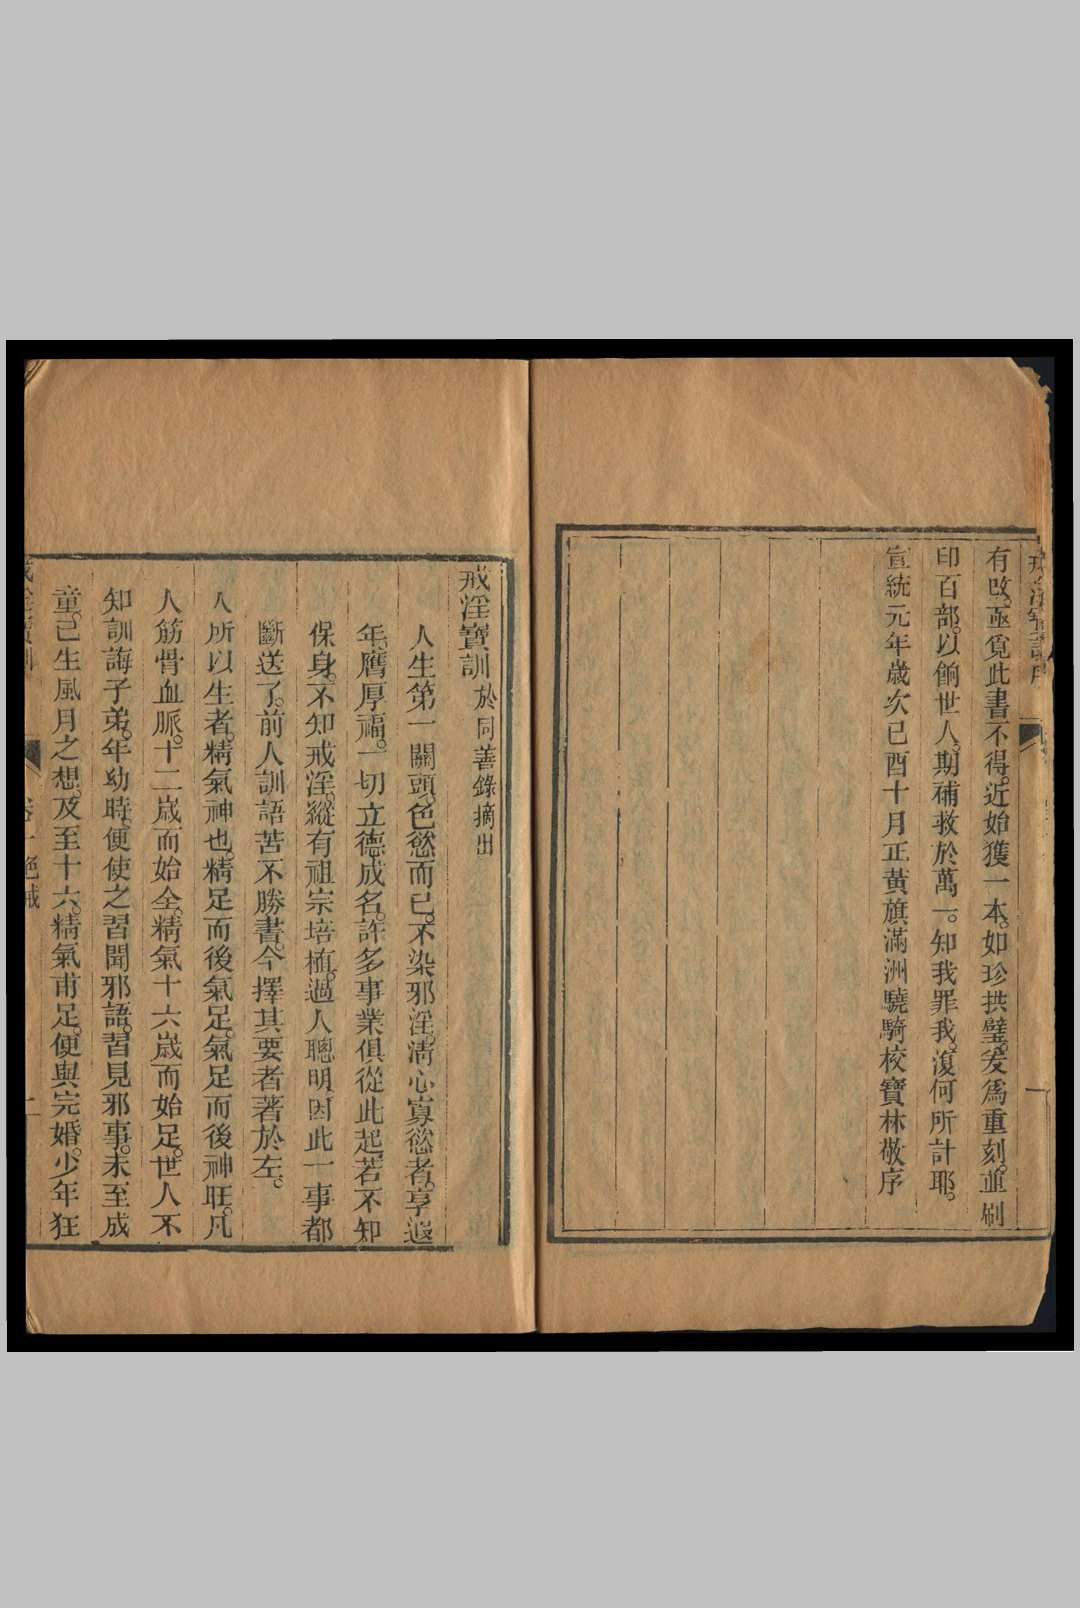 有改亟覓此書不得。近始獲一本。如珍拱璧。爰爲重刻。並刷
印百部。以餉世人。期補救於萬一。知我罪我。復何所計耶。
宣統元年歲次己酉十月正黃旗滿洲驍騎校寶林敬序
戒淫寶訓 於同善錄摘出
人生第一關頭。色慾而已。不染邪淫。清心寡慾者。享遐
年。膺厚福。一切立德成名。許多事業俱從此起。若不知
保身。不知戒淫。縱有祖宗培植。過人聰明因此一事都
斷送了。前人訓語苦不勝書。今擇其要者著於左。
人所以生者。精氣神也。精足而後氣足。氣足而後神旺。凡
人筋骨血脈。十二歲而始全。精氣十六歲而始足。世人不
知訓誨子弟。年幼時。便使之習聞邪語。習見邪事。未至成
童。已生風月之想。及至十六。精氣甫足。便與完婚。少年狂
卷一 絕戒